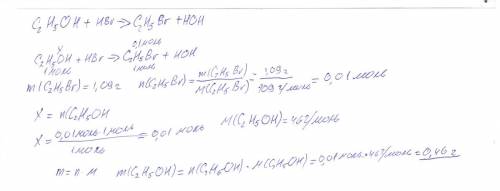 C₂H₅OH + HBr → C₂H₅Br + HOH
x 0,1 моль
C₂H₅OH + HBr → C₂H₅Br + HOH
1 моль 1 моль
m(C₂H₅Br) = 1,09 г n(C₂H₅Br) = m(C₂H₅Br) / M(C₂H₅Br) = 1,09 г / 109 г/моль = 0,01 моль
X = n(C₂H₅OH)
X = 0,01 моль · 1 моль / 1 моль = 0,01 моль M(C₂H₅OH) = 46 г/моль
m = n · M m(C₂H₅OH) = n(C₂H₅OH) · M(C₂H₅OH) = 0,01 моль · 46 г/моль = 0,46 г